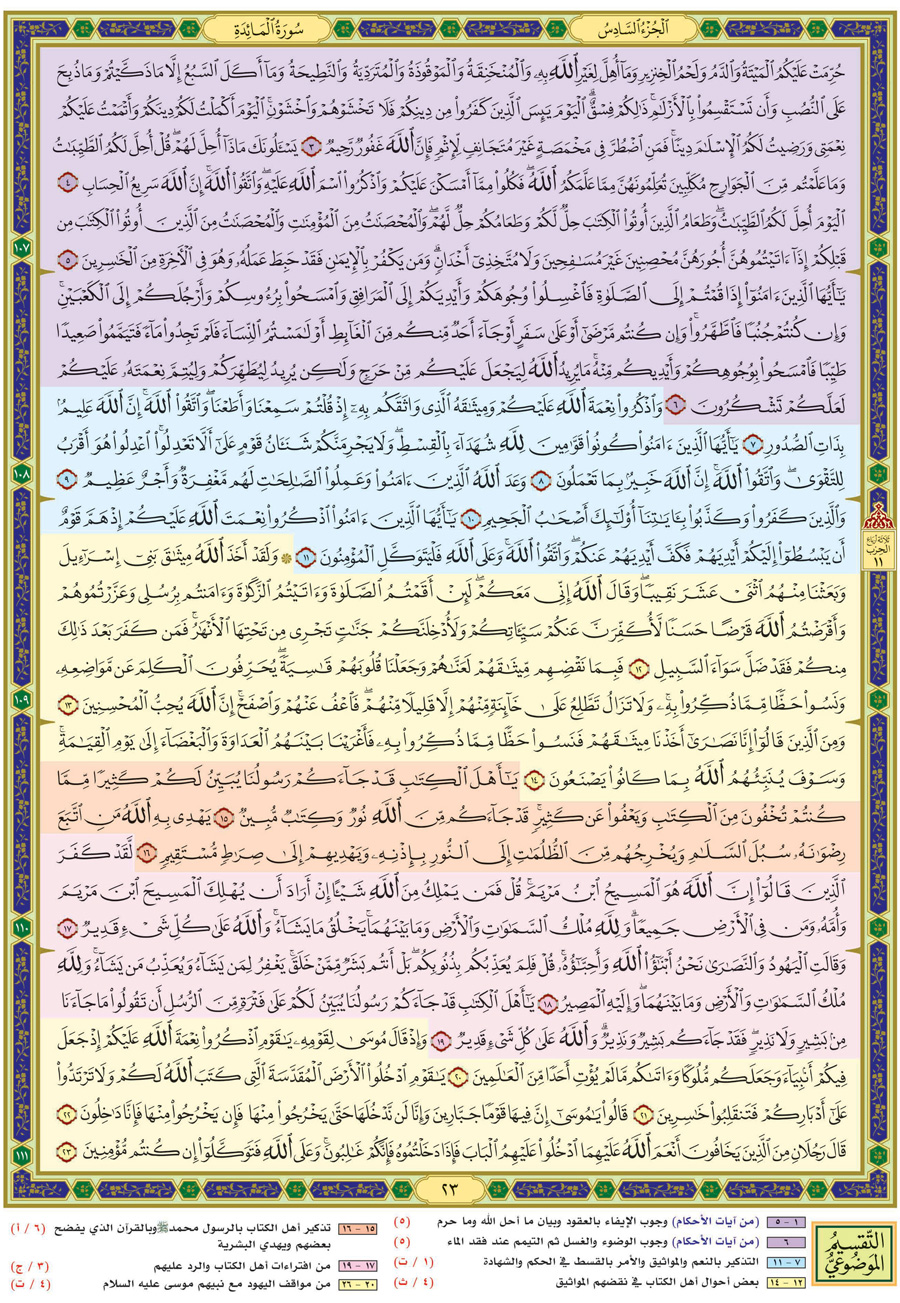 الجُزْءُ السَّادِسُ
سُورَةُ المَائِدَةِ
حُرِّمَتْ عَلَيْكُمُ ٱلْمَيْتَةُ وَٱلدَّمُ وَلَحْمُ ٱلْخِنزِيرِ وَمَآ أُهِلَّ لِغَيْرِ ٱللَّهِ بِهِۦ وَٱلْمُنْخَنِقَةُ وَٱلْمَوْقُوذَةُ وَٱلْمُتَرَدِّيَةُ وَٱلنَّطِيحَةُ وَمَآ أَكَلَ ٱلسَّبُعُ إِلَّا مَا ذَكَّيْتُمْ وَمَا ذُبِحَ
عَلَى ٱلنُّصُبِ وَأَن تَسْتَقْسِمُوا۟ بِٱلْأَزْلَٰمِ ۚ ذَٰلِكُمْ فِسْقٌ ۗ ٱلْيَوْمَ يَئِسَ ٱلَّذِينَ كَفَرُوا۟ مِن دِينِكُمْ فَلَا تَخْشَوْهُمْ وَٱخْشَوْنِ ۚ ٱلْيَوْمَ أَكْمَلْتُ لَكُمْ دِينَكُمْ وَأَتْمَمْتُ عَلَيْكُمْ
نِعْمَتِى وَرَضِيتُ لَكُمُ ٱلْإِسْلَٰمَ دِينًا ۚ فَمَنِ ٱضْطُرَّ فِى مَخْمَصَةٍ غَيْرَ مُتَجَانِفٍ لِّإِثْمٍ ۙ فَإِنَّ ٱللَّهَ غَفُورٌ رَّحِيمٌ ٣ يَسْـَٔلُونَكَ مَاذَآ أُحِلَّ لَهُمْ ۖ قُلْ أُحِلَّ لَكُمُ ٱلطَّيِّبَٰتُ
وَمَا عَلَّمْتُم مِّنَ ٱلْجَوَارِحِ مُكَلِّبِينَ تُعَلِّمُونَهُنَّ مِمَّا عَلَّمَكُمُ ٱللَّهُ ۖ فَكُلُوا۟ مِمَّآ أَمْسَكْنَ عَلَيْكُمْ وَٱذْكُرُوا۟ ٱسْمَ ٱللَّهِ عَلَيْهِ ۖ وَٱتَّقُوا۟ ٱللَّهَ ۚ إِنَّ ٱللَّهَ سَرِيعُ ٱلْحِسَابِ ٤
ٱلْيَوْمَ أُحِلَّ لَكُمُ ٱلطَّيِّبَٰتُ ۖ وَطَعَامُ ٱلَّذِينَ أُوتُوا۟ ٱلْكِتَٰبَ حِلٌّ لَّكُمْ وَطَعَامُكُمْ حِلٌّ لَّهُمْ ۖ وَٱلْمُحْصَنَٰتُ مِنَ ٱلْمُؤْمِنَٰتِ وَٱلْمُحْصَنَٰتُ مِنَ ٱلَّذِينَ أُوتُوا۟ ٱلْكِتَٰبَ مِن
قَبْلِكُمْ إِذَآ ءَاتَيْتُمُوهُنَّ أُجُورَهُنَّ مُحْصِنِينَ غَيْرَ مُسَٰفِحِينَ وَلَا مُتَّخِذِىٓ أَخْدَانٍ ۗ وَمَن يَكْفُرْ بِٱلْإِيمَٰنِ فَقَدْ حَبِطَ عَمَلُهُۥ وَهُوَ فِى ٱلْءَاخِرَةِ مِنَ ٱلْخَٰسِرِينَ ٥
يَٰٓأَيُّهَا ٱلَّذِينَ ءَامَنُوٓا۟ إِذَا قُمْتُمْ إِلَى ٱلصَّلَوٰةِ فَٱغْسِلُوا۟ وُجُوهَكُمْ وَأَيْدِيَكُمْ إِلَى ٱلْمَرَافِقِ وَٱمْسَحُوا۟ بِرُءُوسِكُمْ وَأَرْجُلَكُمْ إِلَى ٱلْكَعْبَيْنِ ۚ
وَإِن كُنتُمْ جُنُبًا فَٱطَّهَّرُوا۟ ۚ وَإِن كُنتُم مَّرْضَىٰٓ أَوْ عَلَىٰ سَفَرٍ أَوْ جَآءَ أَحَدٌ مِّنكُم مِّنَ ٱلْغَآئِطِ أَوْ لَٰمَسْتُمُ ٱلنِّسَآءَ فَلَمْ تَجِدُوا۟ مَآءً فَتَيَمَّمُوا۟ صَعِيدًا
طَيِّبًا فَٱمْسَحُوا۟ بِوُجُوهِكُمْ وَأَيْدِيكُم مِّنْهُ ۚ مَا يُرِيدُ ٱللَّهُ لِيَجْعَلَ عَلَيْكُم مِّنْ حَرَجٍ وَلَٰكِن يُرِيدُ لِيُطَهِّرَكُمْ وَلِيُتِمَّ نِعْمَتَهُۥ عَلَيْكُمْ
لَعَلَّكُمْ تَشْكُرُونَ ٦ وَٱذْكُرُوا۟ نِعْمَةَ ٱللَّهِ عَلَيْكُمْ وَمِيثَٰقَهُ ٱلَّذِى وَاثَقَكُم بِهِۦٓ إِذْ قُلْتُمْ سَمِعْنَا وَأَطَعْنَا ۖ وَٱتَّقُوا۟ ٱللَّهَ ۚ إِنَّ ٱللَّهَ عَلِيمٌۢ
بِذَاتِ ٱلصُّدُورِ ٧ يَٰٓأَيُّهَا ٱلَّذِينَ ءَامَنُوا۟ كُونُوا۟ قَوَّٰمِينَ لِلَّهِ شُهَدَآءَ بِٱلْقِسْطِ ۖ وَلَا يَجْرِمَنَّكُمْ شَنَـَٔانُ قَوْمٍ عَلَىٰٓ أَلَّا تَعْدِلُوا۟ ۚ ٱعْدِلُوا۟ هُوَ أَقْرَبُ
لِلتَّقْوَىٰ ۖ وَٱتَّقُوا۟ ٱللَّهَ ۚ إِنَّ ٱللَّهَ خَبِيرٌۢ بِمَا تَعْمَلُونَ ٨ وَعَدَ ٱللَّهُ ٱلَّذِينَ ءَامَنُوا۟ وَعَمِلُوا۟ ٱلصَّٰلِحَٰتِ ۙ لَهُم مَّغْفِرَةٌ وَأَجْرٌ عَظِيمٌ ٩
وَٱلَّذِينَ كَفَرُوا۟ وَكَذَّبُوا۟ بِـَٔايَٰتِنَآ أُو۟لَٰٓئِكَ أَصْحَٰبُ ٱلْجَحِيمِ ١٠ يَٰٓأَيُّهَا ٱلَّذِينَ ءَامَنُوا۟ ٱذْكُرُوا۟ نِعْمَتَ ٱللَّهِ عَلَيْكُمْ إِذْ هَمَّ قَوْمٌ
أَن يَبْسُطُوٓا۟ إِلَيْكُمْ أَيْدِيَهُمْ فَكَفَّ أَيْدِيَهُمْ عَنكُمْ ۖ وَٱتَّقُوا۟ ٱللَّهَ ۚ وَعَلَى ٱللَّهِ فَلْيَتَوَكَّلِ ٱلْمُؤْمِنُونَ ١١ ۞ وَلَقَدْ أَخَذَ ٱللَّهُ مِيثَٰقَ بَنِىٓ إِسْرَٰٓءِيلَ
وَبَعَثْنَا مِنْهُمُ ٱثْنَىْ عَشَرَ نَقِيبًا ۖ وَقَالَ ٱللَّهُ إِنِّى مَعَكُمْ ۖ لَئِنْ أَقَمْتُمُ ٱلصَّلَوٰةَ وَءَاتَيْتُمُ ٱلزَّكَوٰةَ وَءَامَنتُم بِرُسُلِى وَعَزَّرْتُمُوهُمْ
وَأَقْرَضْتُمُ ٱللَّهَ قَرْضًا حَسَنًا لَّأُكَفِّرَنَّ عَنكُمْ سَيِّـَٔاتِكُمْ وَلَأُدْخِلَنَّكُمْ جَنَّٰتٍ تَجْرِى مِن تَحْتِهَا ٱلْأَنْهَٰرُ ۚ فَمَن كَفَرَ بَعْدَ ذَٰلِكَ
مِنكُمْ فَقَدْ ضَلَّ سَوَآءَ ٱلسَّبِيلِ ١٢ فَبِمَا نَقْضِهِم مِّيثَٰقَهُمْ لَعَنَّٰهُمْ وَجَعَلْنَا قُلُوبَهُمْ قَٰسِيَةً ۖ يُحَرِّفُونَ ٱلْكَلِمَ عَن مَّوَاضِعِهِۦ ۙ
وَنَسُوا۟ حَظًّا مِّمَّا ذُكِّرُوا۟ بِهِۦ ۚ وَلَا تَزَالُ تَطَّلِعُ عَلَىٰ خَآئِنَةٍ مِّنْهُمْ إِلَّا قَلِيلًا مِّنْهُمْ ۖ فَٱعْفُ عَنْهُمْ وَٱصْفَحْ ۚ إِنَّ ٱللَّهَ يُحِبُّ ٱلْمُحْسِنِينَ ١٣
وَمِنَ ٱلَّذِينَ قَالُوٓا۟ إِنَّا نَصَٰرَىٰٓ أَخَذْنَا مِيثَٰقَهُمْ فَنَسُوا۟ حَظًّا مِّمَّا ذُكِّرُوا۟ بِهِۦ فَأَغْرَيْنَا بَيْنَهُمُ ٱلْعَدَاوَةَ وَٱلْبَغْضَآءَ إِلَىٰ يَوْمِ ٱلْقِيَٰمَةِ ۚ
وَسَوْفَ يُنَبِّئُهُمُ ٱللَّهُ بِمَا كَانُوا۟ يَصْنَعُونَ ١٤ يَٰٓأَهْلَ ٱلْكِتَٰبِ قَدْ جَآءَكُمْ رَسُولُنَا يُبَيِّنُ لَكُمْ كَثِيرًا مِّمَّا
كُنتُمْ تُخْفُونَ مِنَ ٱلْكِتَٰبِ وَيَعْفُوا۟ عَن كَثِيرٍ ۚ قَدْ جَآءَكُم مِّنَ ٱللَّهِ نُورٌ وَكِتَٰبٌ مُّبِينٌ ١٥ يَهْدِى بِهِ ٱللَّهُ مَنِ ٱتَّبَعَ
رِضْوَٰنَهُۥ سُبُلَ ٱلسَّلَٰمِ وَيُخْرِجُهُم مِّنَ ٱلظُّلُمَٰتِ إِلَى ٱلنُّورِ بِإِذْنِهِۦ وَيَهْدِيهِمْ إِلَىٰ صِرَٰطٍ مُّسْتَقِيمٍ ١٦ لَّقَدْ كَفَرَ
ٱلَّذِينَ قَالُوٓا۟ إِنَّ ٱللَّهَ هُوَ ٱلْمَسِيحُ ٱبْنُ مَرْيَمَ ۚ قُلْ فَمَن يَمْلِكُ مِنَ ٱللَّهِ شَيْـًٔا إِنْ أَرَادَ أَن يُهْلِكَ ٱلْمَسِيحَ ٱبْنَ مَرْيَمَ
وَأُمَّهُۥ وَمَن فِى ٱلْأَرْضِ جَمِيعًا ۗ وَلِلَّهِ مُلْكُ ٱلسَّمَٰوَٰتِ وَٱلْأَرْضِ وَمَا بَيْنَهُمَا ۚ يَخْلُقُ مَا يَشَآءُ ۚ وَٱللَّهُ عَلَىٰ كُلِّ شَىْءٍ قَدِيرٌ ١٧
وَقَالَتِ ٱلْيَهُودُ وَٱلنَّصَٰرَىٰ نَحْنُ أَبْنَٰٓؤُا۟ ٱللَّهِ وَأَحِبَّٰٓؤُهُۥ ۚ قُلْ فَلِمَ يُعَذِّبُكُم بِذُنُوبِكُم ۖ بَلْ أَنتُم بَشَرٌ مِّمَّنْ خَلَقَ ۚ يَغْفِرُ لِمَن يَشَآءُ وَيُعَذِّبُ مَن يَشَآءُ ۚ وَلِلَّهِ
مُلْكُ ٱلسَّمَٰوَٰتِ وَٱلْأَرْضِ وَمَا بَيْنَهُمَا ۖ وَإِلَيْهِ ٱلْمَصِيرُ ١٨ يَٰٓأَهْلَ ٱلْكِتَٰبِ قَدْ جَآءَكُمْ رَسُولُنَا يُبَيِّنُ لَكُمْ عَلَىٰ فَتْرَةٍ مِّنَ ٱلرُّسُلِ أَن تَقُولُوا۟ مَا جَآءَنَا
مِنۢ بَشِيرٍ وَلَا نَذِيرٍ ۖ فَقَدْ جَآءَكُم بَشِيرٌ وَنَذِيرٌ ۗ وَٱللَّهُ عَلَىٰ كُلِّ شَىْءٍ قَدِيرٌ ١٩ وَإِذْ قَالَ مُوسَىٰ لِقَوْمِهِۦ يَٰقَوْمِ ٱذْكُرُوا۟ نِعْمَةَ ٱللَّهِ عَلَيْكُمْ إِذْ جَعَلَ
فِيكُمْ أَنۢبِيَآءَ وَجَعَلَكُم مُّلُوكًا وَءَاتَىٰكُم مَّا لَمْ يُؤْتِ أَحَدًا مِّنَ ٱلْعَٰلَمِينَ ٢٠ يَٰقَوْمِ ٱدْخُلُوا۟ ٱلْأَرْضَ ٱلْمُقَدَّسَةَ ٱلَّتِى كَتَبَ ٱللَّهُ لَكُمْ وَلَا تَرْتَدُّوا۟
عَلَىٰٓ أَدْبَارِكُمْ فَتَنقَلِبُوا۟ خَٰسِرِينَ ٢١ قَالُوا۟ يَٰمُوسَىٰٓ إِنَّ فِيهَا قَوْمًا جَبَّارِينَ وَإِنَّا لَن نَّدْخُلَهَا حَتَّىٰ يَخْرُجُوا۟ مِنْهَا فَإِن يَخْرُجُوا۟ مِنْهَا فَإِنَّا دَٰخِلُونَ ٢٢
قَالَ رَجُلَانِ مِنَ ٱلَّذِينَ يَخَافُونَ أَنْعَمَ ٱللَّهُ عَلَيْهِمَا ٱدْخُلُوا۟ عَلَيْهِمُ ٱلْبَابَ فَإِذَا دَخَلْتُمُوهُ فَإِنَّكُمْ غَٰلِبُونَ ۚ وَعَلَى ٱللَّهِ فَتَوَكَّلُوٓا۟ إِن كُنتُم مُّؤْمِنِينَ ٢٣
١٠٧
١٠٨
ثلاثة أرباع
الحزب
١١
١٠٩
١١٠
١١١
٢٣
التَّقسِيمُ
المَوضُوعيُّ
١ - ٥ (من آيات الأحكام) وجوب الإيفاء بالعقود وبيان ما أحل الله وما حرم (٥)
٦ (من آيات الأحكام) وجوب الوضوء والغسل ثم التيمم عند فقد الماء (٥)
٧ - ١١ التذكير بالنعم والمواثيق والأمر بالقسط في الحكم والشهادة (١ / ت)
١٢ - ١٤ بعض أحوال أهل الكتاب في نقضهم المواثيق (٤ / ث)
١٥ - ١٦ تذكير أهل الكتاب بالرسول محمد ﷺ وبالقرآن الذي يفضح (٦ / أ)
بعضهم ويهدي البشرية
١٧ - ١٩ من افتراءات أهل الكتاب والرد عليهم (٣ / ج)
٢٠ - ٢٦ من مواقف اليهود مع نبيهم موسى عليه السلام (٤ / ت)